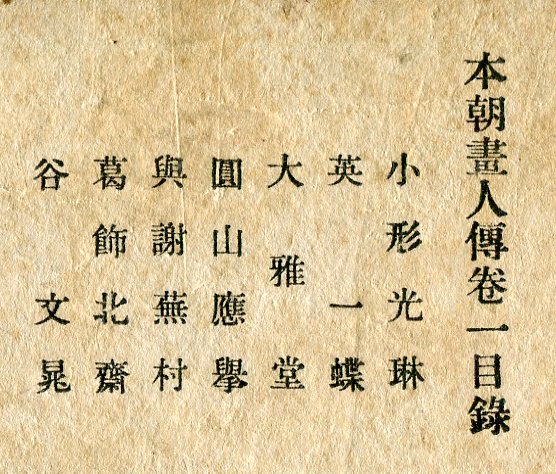 本朝畫人傳卷一目錄
小形光琳
英一蝶
大雅堂
圓山應擧
與謝蕪村
葛飾北齋
谷文晁